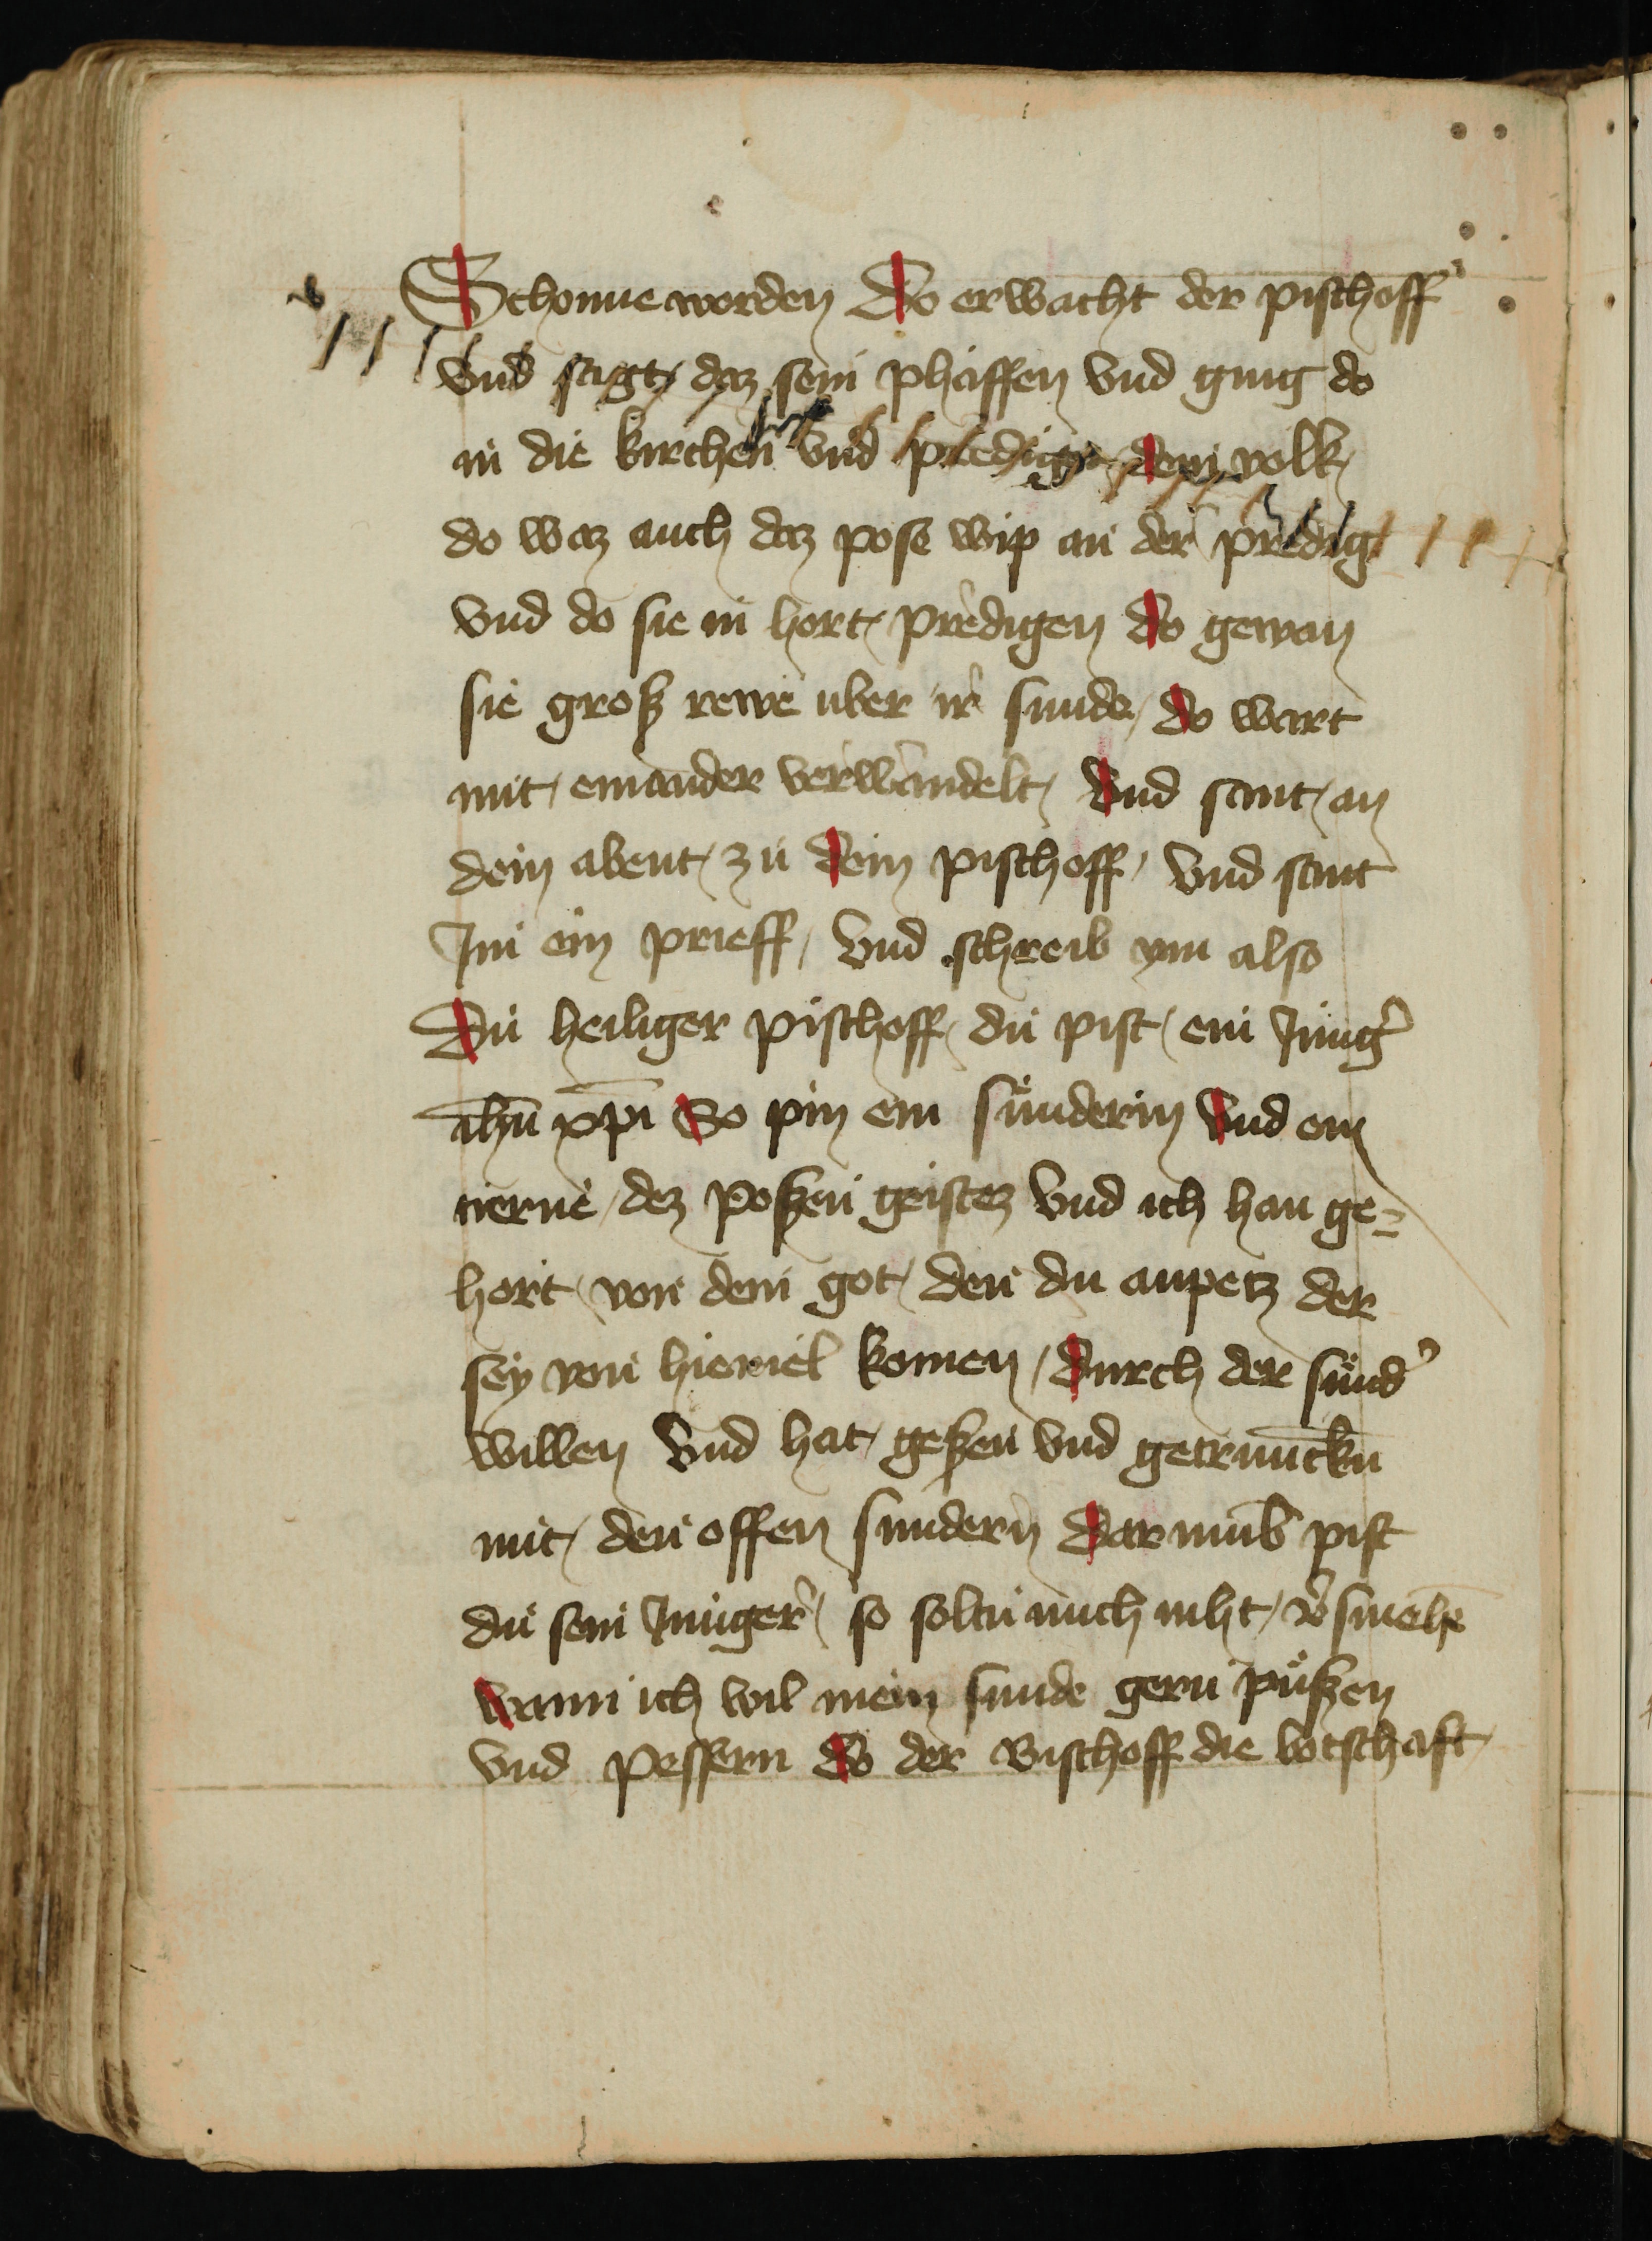 Schonne worden Do erwacht der pischoff
vnd sagt daz sein phaffen vnd ging do
in die kirchen vnd predigt dem volk
do waz auch daz pose wip an der predig
vnd do sie in hort predigen do gewan
sie groß rewe uber ir sunde do wart
mit einander verwandelt vnd sant an
dem abent zu dem pischoff vnd sant
Im ein prieff vnd schreib ym also
Du heiliger pischoff du pist ein Jungʼ
ihū xp̄i So pin ein sünderin vnd ein
dirne dez poßen geistez vnd ich han ge-
hort von dem got den du anpetz der
sey von hiemel komen durch der sündʼ
willen vnd hat geßen vnd getrunckn̄
mit den offen sundern Darumb pist
du sein Junger so soltu mich niht vʼsmehē
wann ich wil mein sunde gern püßen
vnd pessern do der Bischoff die botschaft